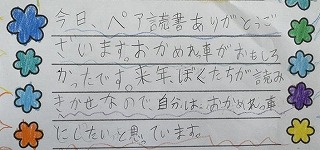 今日、ペア読書ありがとうご
ざいます。おかめれっ車がおもしろ
かったです。来年、ぼくたちが読み
きかせなので、自分は、おかめれっ車
にしたいと思っています。